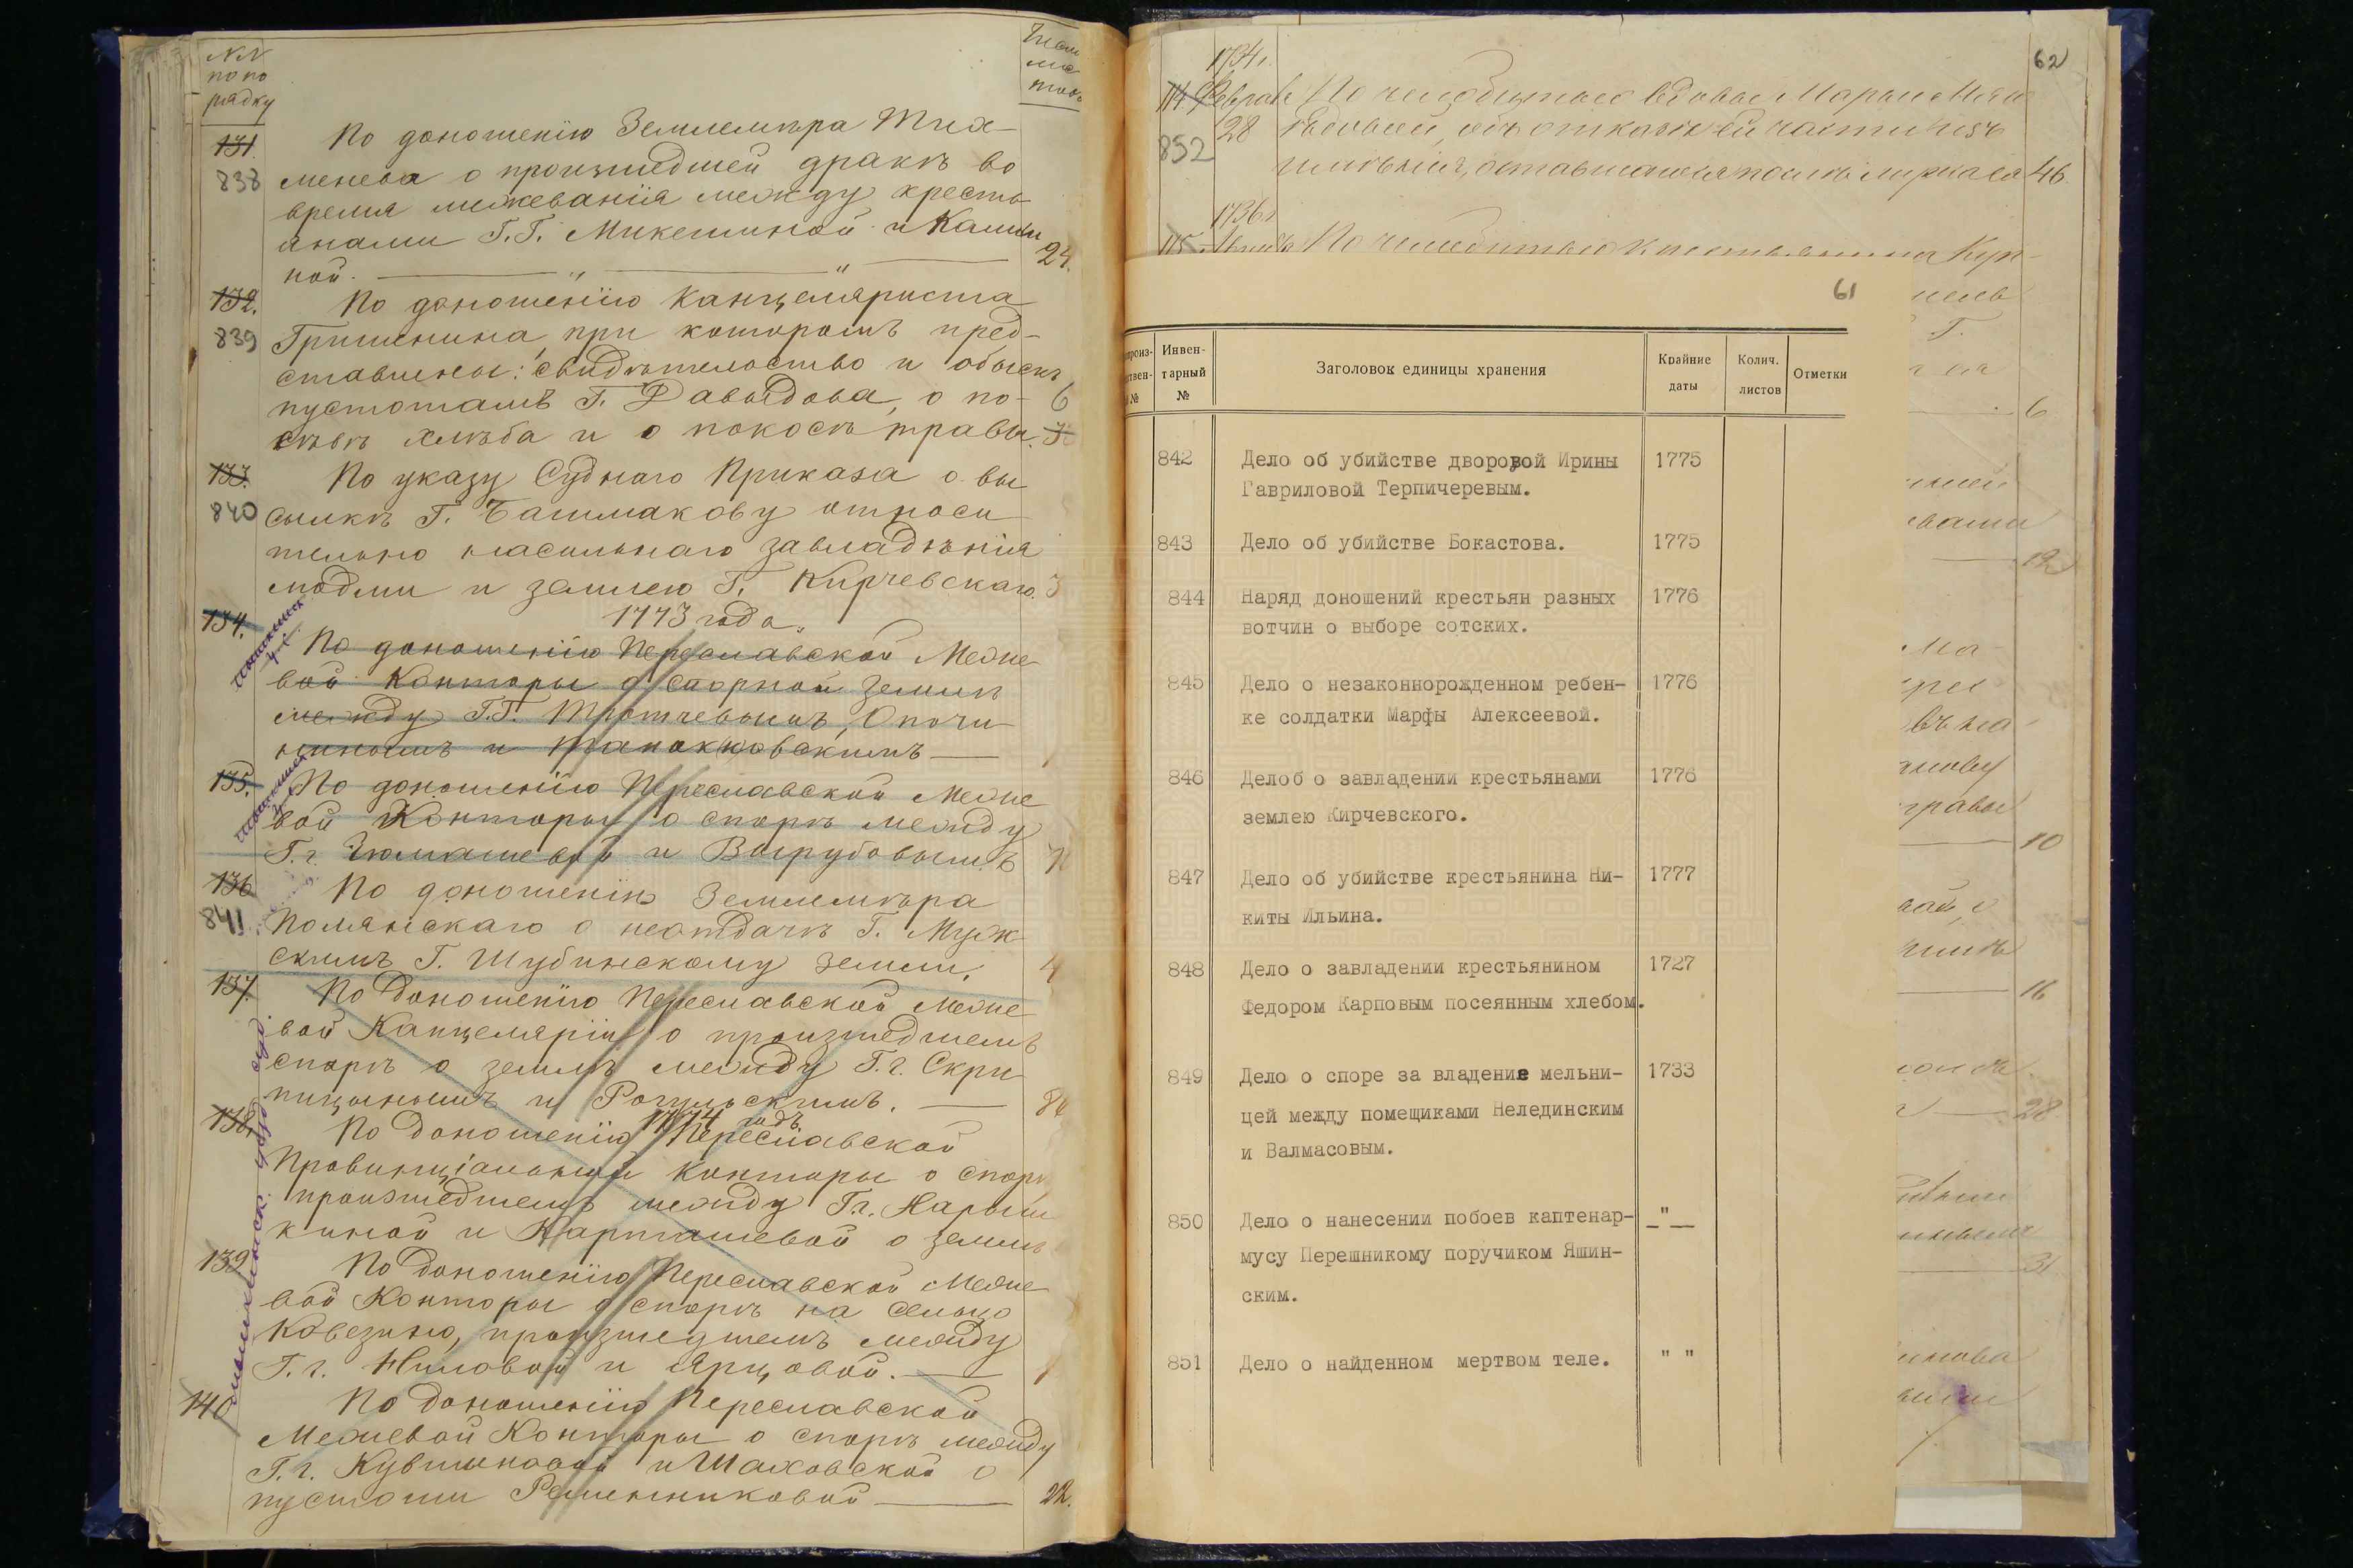 NN
по по
рядку
131.
838
По доношенію Землемѣра Тих-
менева о произшедшей дракѣ во
время межеванія между кресть
янами Г.Г. Микешиной и Кашки
ной. 24.
132.
839
По доношенію Канцеляриста
Гришенина, при которомъ пред-
ставлены: свидѣтельство и обыскъ
пустошамъ Г. Давыдова, о по- 6
сѣвѣ хлѣба и о покосѣ травы.
133.
840
По указу Суднаго Приказа о вы
сылкѣ Г. Башмакову относи
тельно насильнаго завладѣнія
людми и землею Г. Кирчевскаго. 3
1773 года.
134.
По доношенію Переславской Меже
вой Конторы о спорной землѣ
между Г.Г. Опочи
нинымъ и
135.
По доношенію Переславской Меже
вой Конторы о спорѣ между
Г.г. и Вырубовымъ
136
841
По доношенію Землемѣра
Полянскаго о неотдачѣ Г. Муж
скимъ Г. Шубинскому земли. 4
137.
По доношенію Переславской Меже
вой Канцеляріи о произшедшемъ
спорѣ о землѣ между Г.г. Скри
пицынымъ и Рогульскимъ.
1774 годъ.
138.
По доношенію Переславской
Провинціальной Конторы о спорѣ
произшедшемъ между Гг. Нарыш
киной и Карташевой о землѣ
139
По доношенію Переславской Меже
вой Конторы о спорѣ на сельцо
Ковезино, произшедшемъ между
Г.г. Ниловой и Ярцовой. 1
140
По доношенію Переславской
Межевой Конторы о спорѣ между
Г.г. Кувшиновой и Шаховской о
пустоши Ременниковой 22.
62
1734.
114 Феврал По челобитью вдовы Марьи Мяг
28
852
ей части изъ
имѣнія, оставшагося послѣ мужа ея 46.
1736
115. По челобитью крестьянина Куп-
61
Инвен-
тарный
№
Заголовок единицы хранения
Крайние
даты
Колич.
листов
Отметки
842 Дело об убийстве дворовой Ирины 1775
Гавриловой Терпичеревым.
843 Дело об убийстве Бокастова. 1775
844 Наряд доношений крестьян разных 1776
вотчин о выборе сотских.
845 Дело о незаконнорожденном ребен- 1776
ке солдатки Марфы Алексеевой.
846 Делоб о завладении крестьянами 1776
землею Кирчевского.
847 Дело об убийстве крестьянина Ни- 1777
киты Ильина.
848 Дело о завладении крестьянином 1727
Федором Карповым посеянным хлебом.
849 Дело о споре за владение мельни- 1733
цей между помещиками Нелединским
и Валмасовым.
850 Дело о нанесении побоев каптенар- –"–
мусу Перешникому поручиком Яшин-
ским.
851 Дело о найденном мертвом теле. " "
6
12
10
16
28
31